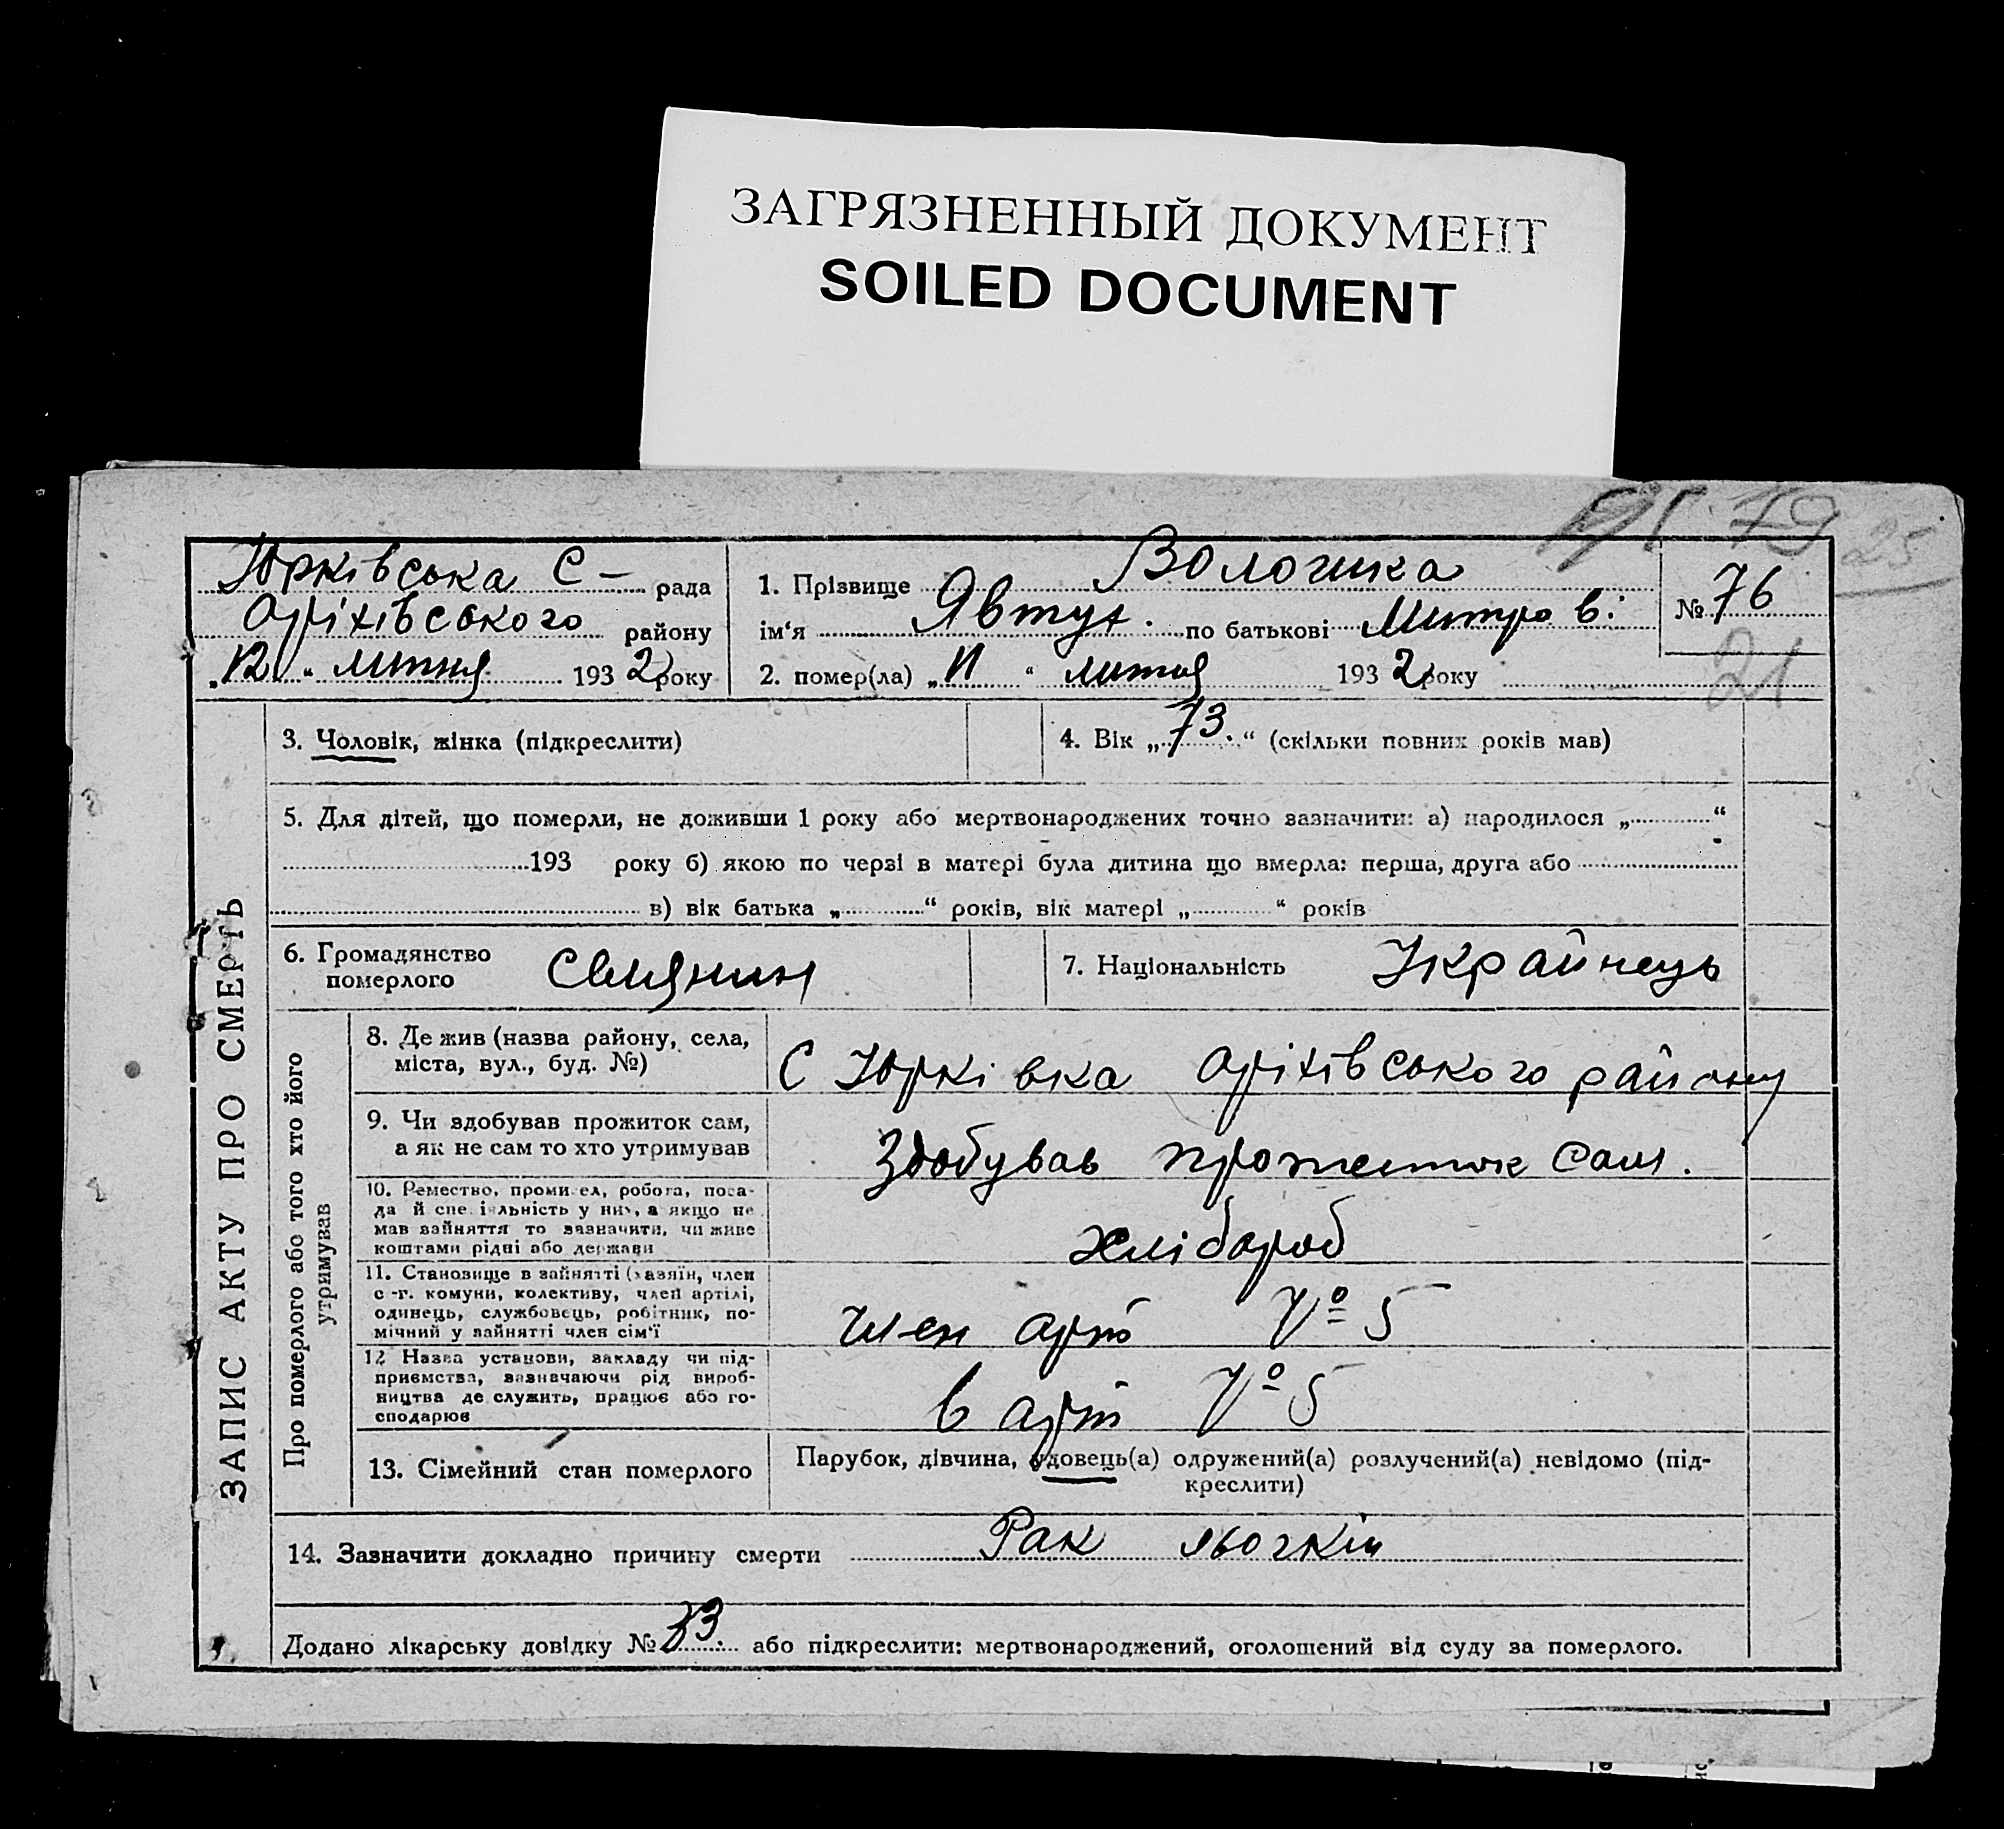 ЗАГРЯЗНЕННЫЙ ДОКУМЕНТ
SOILED DOCUMENT
79 25
Юрківська С – рада
Оріхівського району
„12“ липня 1932 року
1. Прізвище Волошка
ім'я Явтух. по батькові Митров:
2. помер(ла) „11“ липня 1932 року
№ 76
21
ЗАПИС АКТУ ПРО СМЕРТЬ
3. Чоловік, жінка (підкреслити)
4. Вік „73.“ (скільки повних років мав)
5. Для дітей, що померли, не доживши 1 року або мертвонароджених точно зазначити: а) народилося „ “
193 року б) якою по черзі в матері була дитина що вмерла: перша, друга або
в) вік батька „ “ років, вік матері „ “ років
6. Громадянство
померлого Селянин
7. Національність Украйнець
Про померлого або того хто його
утримував
8. Де жив (назва району, села,
міста, вул., буд. №)
С Юрківка Оріхівського району
9. Чи здобував прожиток сам,
а як не сам то хто утримував
Здобував прожиток сам.
10. Ремество, промисел, робота, поса-
да й спеціяльність у них, а якщо не
мав зайняття то зазначити, чи живе
коштами рідні або держави
хлібороб
11. Становище в зайнятті (хазяїн, член
с-г. комуни, колективу, член артілі,
одинець, службовець, робітник, по-
мічний у зайнятті член сім'ї
член арт № 5
12 Назва установи, закладу чи під-
приємства, зазначаючи рід вироб-
ництва де служить, працює або го-
сподарює
в арт № 5
13. Сімейний стан померлого
Парубок, дівчина, удовець(а) одружений(а) розлучений(а) невідомо (під-
креслити)
14. Зазначити докладно причину смерти Рак
Додано лікарську довідку № 33. або підкреслити: мертвонароджений, оголошений від суду за померлого.